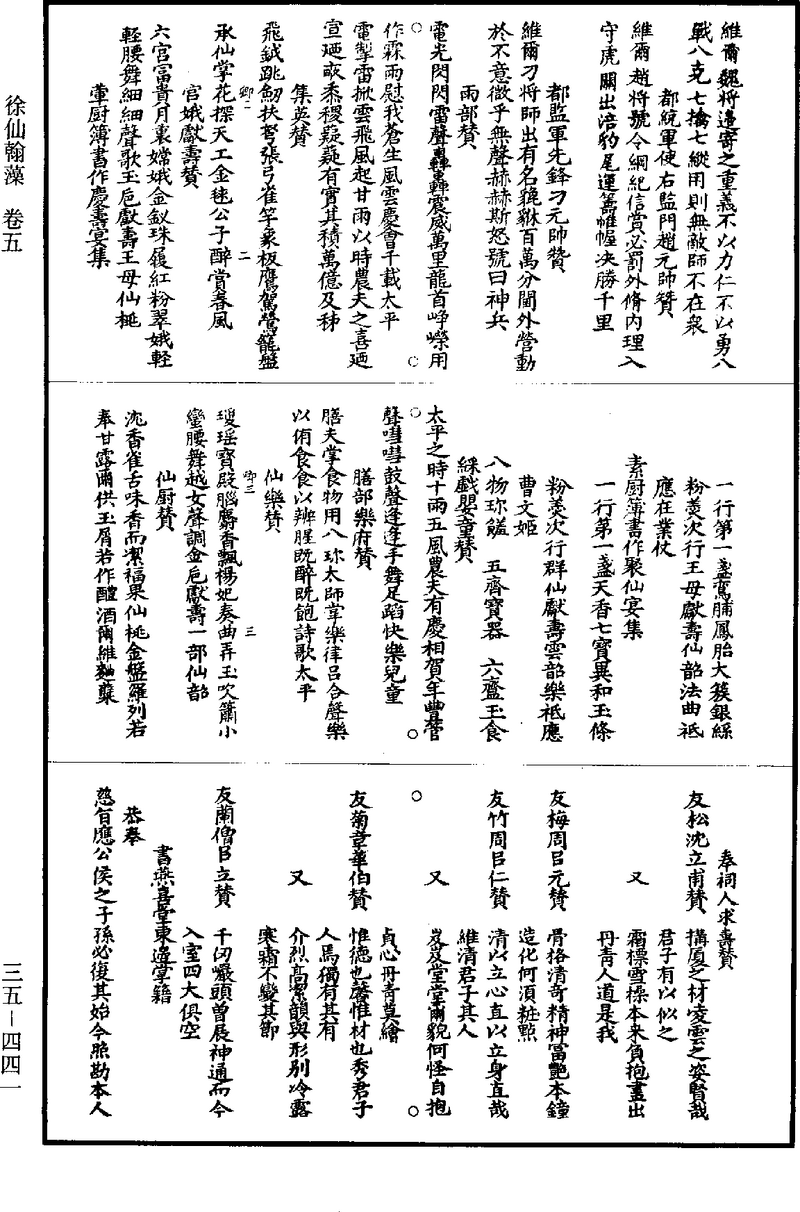 徐仙翰藻　卷五
三五－四四一
維爾魏將邊寄之重義不以力仁不以勇八
戰八克七擒七縱用則無敵師不在衆
都統軍使右監門趙元帥贊
維爾趙將號令綱紀信賞必罰外脩內理入
守虎關出涪豹尾運籌帷幄决勝千里
都監軍先鋒刁元帥贊
維爾刁將師出有名貔貅百萬分閫外營動
於不意微乎無聲赫赫斯怒號曰神兵
雨部贊
電光閃閃雷聲轟轟震威萬里龍首崢嶸用
作霖雨慰我蒼生風雲慶會千載太平
電掣雷掀雲飛風起甘雨以時農夫之喜廼
宣廼畝黍稷薿薿有實其積萬億及秭
集英贊
飛鉞跳劒扶弩張弓雀竿象板鷹駕鶯籠盤
卿二　二
承仙掌花探天工金毬公子醉賞春風
宮娥獻壽贊
六宮富貴月裏嫦娥金釵珠履紅粉翠娥輕
輕腰舞細細聲歌玉巵獻壽王母仙桃
葷厨簿書作慶壽宴集
一行第一盞鸞脯鳳胎大簇銀綵
粉羹次行王母獻壽仙韶法曲祗
應在業仗
素厨簿書作聚仙宴集
一行第一盞天香七寶異和玉條
粉羹次行群仙獻壽雲韶樂祗應
曹文姬
八物珎饈　五齊寶器　六齍玉食
綵戲嬰童贊
太平之時十雨五風農夫有慶相賀年豐管
聲嘒嘒鼓聲逢逢手舞足蹈快樂兒童
膳部樂府贊
膳夫掌食物用八珎太師掌樂律呂合聲樂
以侑食食以辨腥旣醉旣飽詩歌太平
仙樂贊
卿三　三
瓊瑶寶殿腦麝香飄楊妃奏曲弄玉吹簫小
蠻腰舞越女聲調金巵獻壽一部仙韶
仙厨贊
沈香雀舌味香而潔福果仙桃金盤羅列若
奉甘露爾供玉屑若作醴酒爾維麯糵
奉祠人求壽贊
友松沈立甫贊　搆厦之材凌雲之姿賢哉
君子有以似之
又　霜標雪操本來負抱畫出
丹靑人道是我
友梅周呂元贊　骨格清奇精神富艷本鐘
造化何湏粧㸃
友竹周呂仁贊　清以立心直以立身直哉
維清君子其人
又　岌岌堂堂爾貌何怪自抱
貞心丹青莫繪
友菊章華伯贊　惟德也馨惟材也秀君子
人焉獨有其有
又　介烈高潔韻與形别冷露
寒霜不變其節
友蘭僧呂立贊　千仞嚴頭曽展神通而今
入室四大俱空
書燕喜堂東邉掌籍
恭奉
慈旨應公侯之子孫必復其始今照勘本人